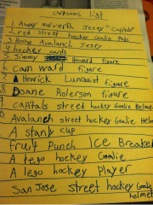 chrismas list
1 Andy
Jersey "capitals"
2 red street hockey Goalie Pads
3 Hockey Avalanch Jersey
4 hockey cards
5 Jimmy Howard figure
6 cam ward figure
7 Henrick Lundquist figure
8 Doane Rolerson figure
capitals street hockey Goalie Helmet
Avalanch street hockey Goalie Helmet
A stanly cup
Fruit Punch Ice Breakers
A lego hockey Goalie
A lego hockey Player
San Jose street hockey Goalie helmet